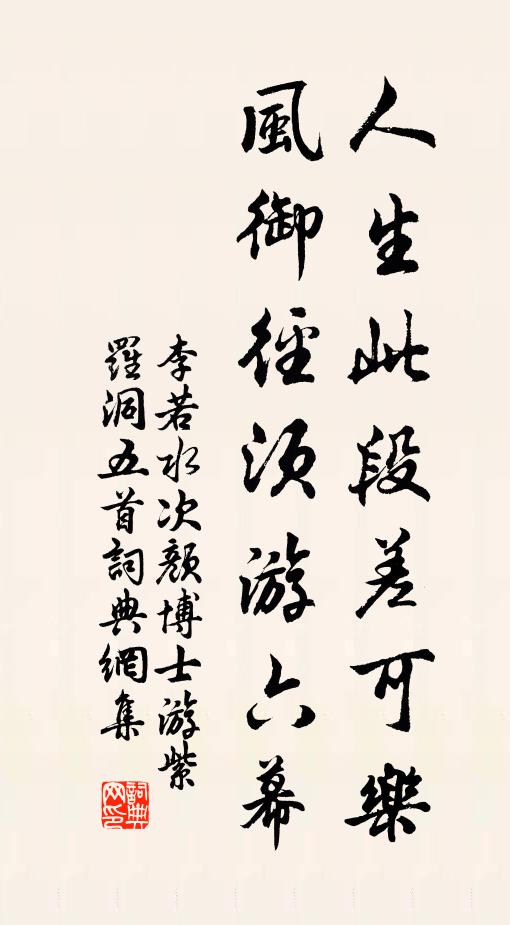 人生此段差可樂
風御徑須游六幕
李若水次顏博士游紫
羅洞五首詞典網集
詞典
网印